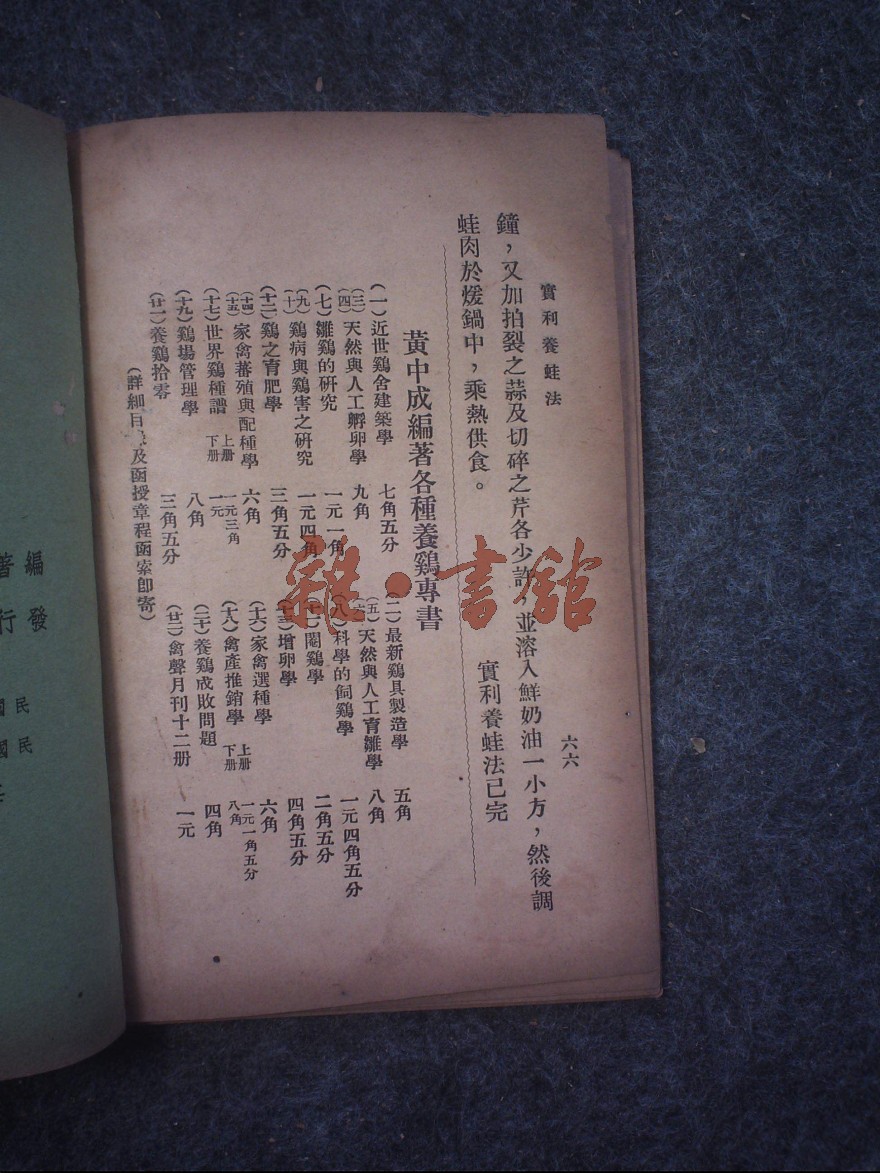 實利養蛙法
六六
鐘，又加拍裂之蒜及切碎之芹各少許，並溶入鮮奶油一小方，然後調
蛙肉於煖鍋中，乘熱供食。
實利養蛙法已完
黃中成編著各種養鷄專書
（一）近世鷄舍建築學 七角五分 （二）最新鷄具製造學 五角
（三）
（四）天然與人工孵卵學 九角 （五）
天然與人工育雛學 八角
（七）雛鷄的研究 一元一角 （八）科學的飼鷄學 一元四角五分
（九）
（十）鷄病與鷄害之研究 一元四角 閹鷄學 二角五分
（十二）鷄之育肥學 三角五分 （十三）增卵學 四角五分
（十四）
（十五）家禽蕃殖與配種學 六角 （十六）家禽選種學 六角
（十七）世界鷄種譜 上册 一元三角
下册 一元
（十八）禽產推銷學 上册 一元一角五分
下册 八角
（十九）鷄場管理學 八角 （二十）養鷄成敗問題 四角
（廿一）養鷄拾零 三角五分 （廿二）禽聲月刊十二册 一元
（詳細目及函授章程函索卽寄）
編著
發行
民國
民國
雜·書館